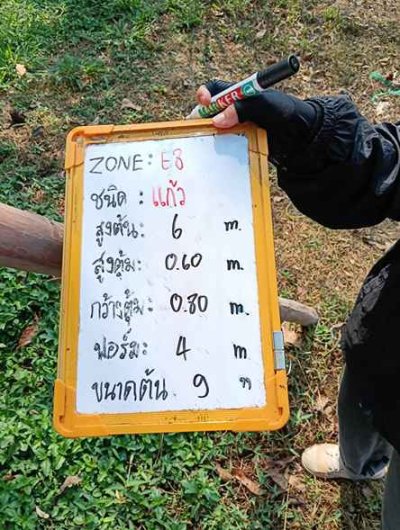 MARKER
ZONE: E8
ชนิด : แก้ว
สูงต้น: 6 m.
สูงตุ้ม: 0.60 m.
กว้างตุ้ม: 0.80 m.
ฟอร์ม: 4 m
ขนาดต้น 9 "